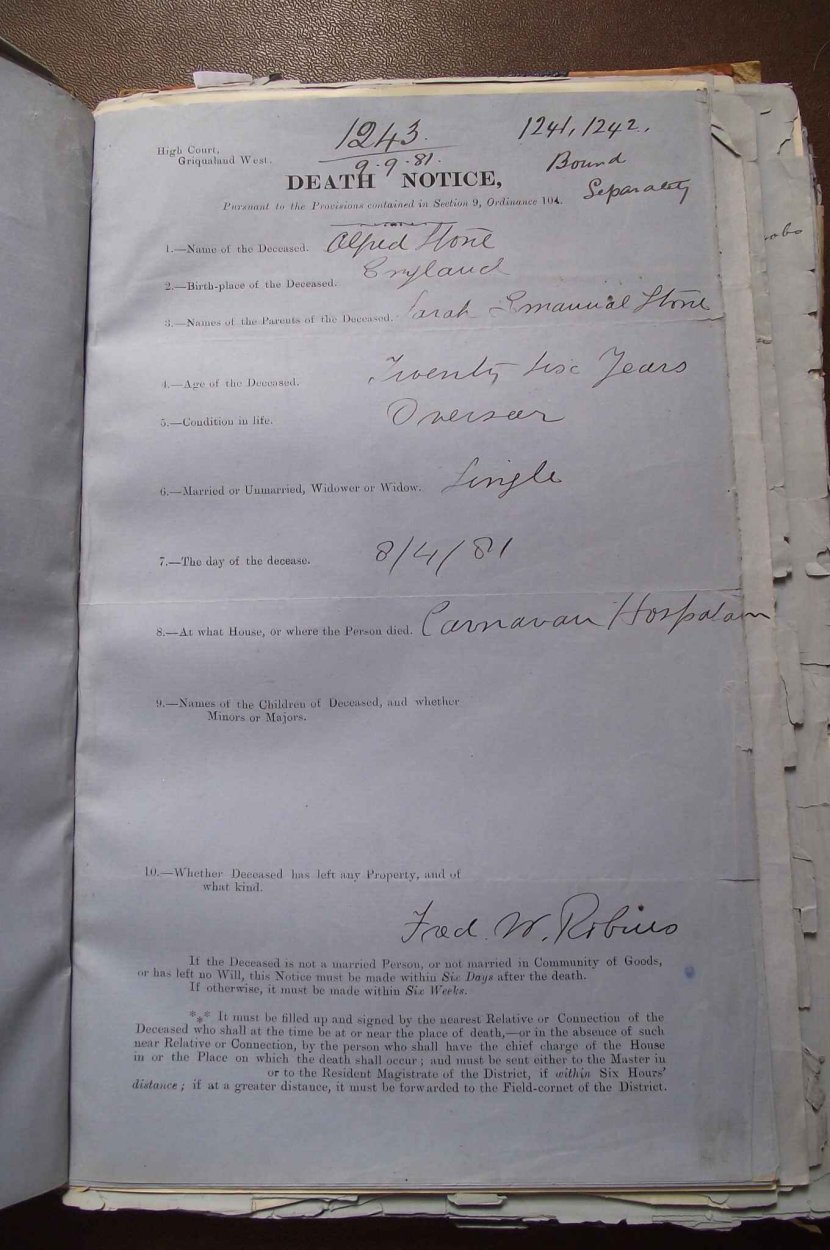 High Court,
Griqualand West.
1243.
9.9.81.
1241, 1242.,
Bound
Separately
DEATH NOTICE,
Pursuant to the Provisions contained in Section 9, Ordinance 104.
1.—Name of the Deceased. Alfred Stone
2.—Birth-place of the Deceased. England
3.—Names of the Parents of the Deceased. Sarah Emanual Stone
4.—Age of the Deceased. Twenty six Years
5.—Condition in life. Overseer
6.—Married or Unmarried, Widower or Widow. Single
7.—The day of the decease. 8/4/81
8.—At what House, or where the Person died. Carnavan
9.—Names of the Children of Deceased, and whether
Minors or Majors.
10.—Whether Deceased has left any Property, and of
what kind.
Fred. W.
If the Deceased is not a married Person, or not married in Community of Goods,
or has left no Will, this Notice must be made within Six Days after the death.
If otherwise, it must be made within Six Weeks.
*** It must be filled up and signed by the nearest Relative or Connection of the
Deceased who shall at the time be at or near the place of death,—or in the absence of such
near Relative or Connection, by the person who shall have the chief charge of the House
in or the Place on which the death shall occur; and must be sent either to the Master in
or to the Resident Magistrate of the District, if within Six Hours'
distance; if at a greater distance, it must be forwarded to the Field-cornet of the District.